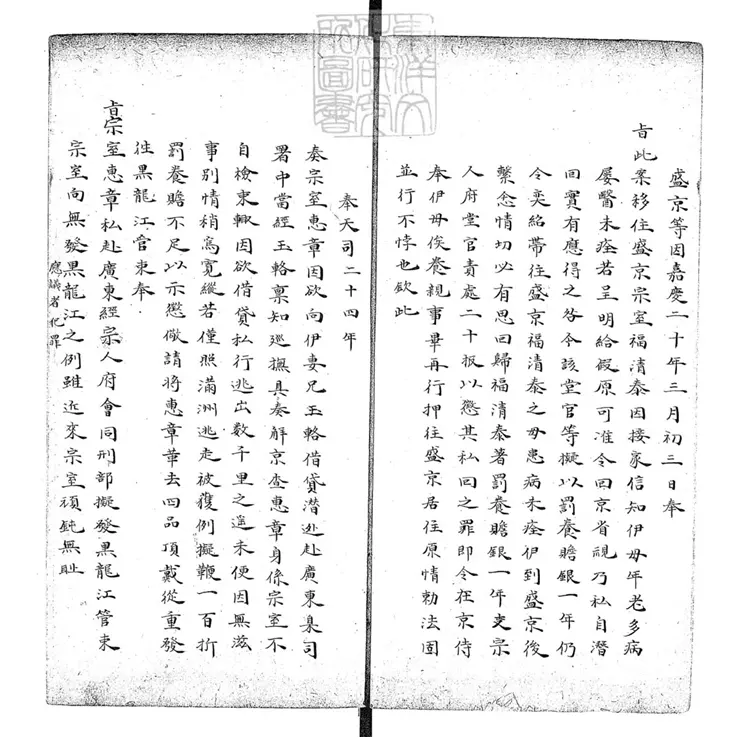 盛京等因嘉慶二十年三月初三日奉
旨此案移住盛京宗室福清泰因接家信知伊母年老多病
屡醫未痊若呈明給假原可准令回京省視乃私自潛
回實有應得之咎今該堂官等擬以罰養贍銀一年仍
令奕紹帶往盛京福清泰之母患病未痊伊到盛京後
繫念情切必有思回歸福清泰著罰養贍銀一年交宗
人府堂官責處二十板以懲其私回之罪即令在京侍
奉伊母俟養親事畢再行押往盛京居住原情勅法固
並行不悖也欽此
奉天司二十四年
奏宗室惠章因欲向伊妻兄玉輅借貸潛逃赴廣東臬司
署中當經玉輅稟知巡撫具奏解京查惠章身係宗室不
自檢束輒因欲借貸私行逃出數千里之遙未便因無滋
事別情稍為寬縱若僅照滿洲逃走被獲例擬鞭一百折
罰養贍不足以示懲儆請將惠章革去四品頂戴從重發
往黑龍江管束奉
旨宗室惠章私赴廣東經宗人府會同刑部擬發黑龍江管束
宗室向無發黑龍江之例雖近來宗室頑鈍無耻
應議者犯罪
東洋文化研究所圖書